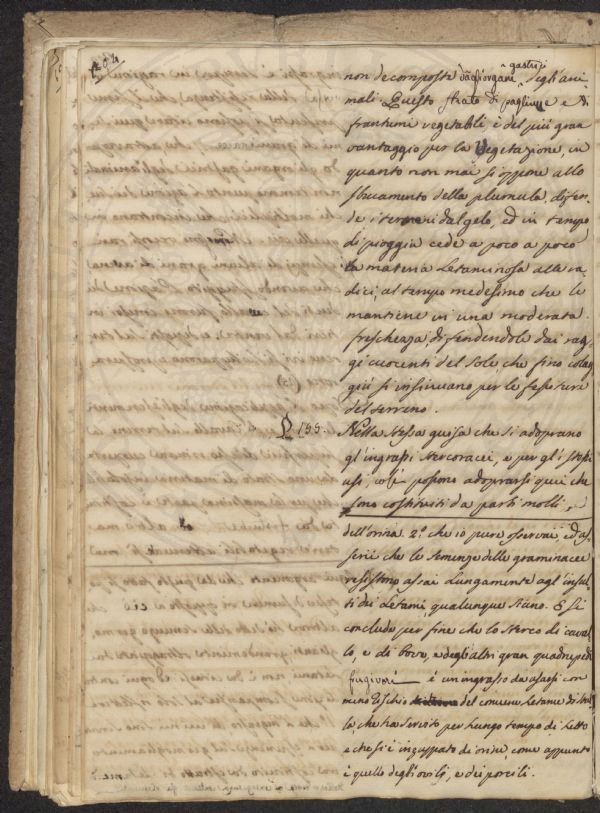 104
non decomposte dagli organi gastrici degli ani-
mali. Questo strato di pagliume e di
frantumi vegetabili, è del più gran
vantaggio per la vegetazione, in
quanto non mai si oppone allo
sbucamento della plumula, difen-
de i teneri dal gelo, ed in tempo
di pioggia cede a poco a poco
la materia letaminosa alle ra-
dici, al tempo medesimo che le
mantiene in una moderata
freschezza difendendole dai rag-
gi cuocenti del sole, che fino colag-
giù si insinuano per le fessure
del terreno.
§ 155. Nella stessa guisa che si adoprano
gl'ingrassi stercoracei, e per gl'istessi
usi, così possono adoprarsi quei che
sono costituiti da parti molli,
dell'orina 2.° che io pure osservai, ed as-
serii che le semenze delle graminacee
resistono assai lungamente agl'insul-
ti dei letami, qualunque siano. E si
conclude per fine che lo sterco di caval-
lo, e di bove, e degli altri gran quadrupedi
frugivori è un ingrasso da usarsi con
meno rischio del comune letame di stal-
la che ha servito per lungo tempo di letto
e che si è inzuppato di orine, come appunto
è quello degli ovili, e dei porcili.